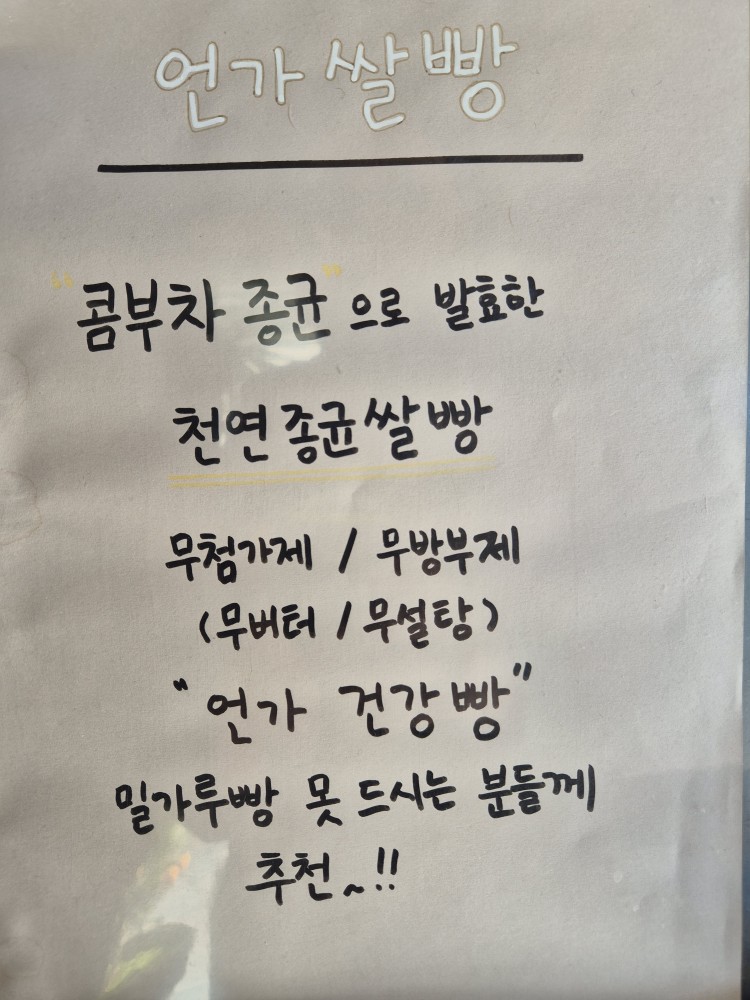 언가 쌀빵
"콤부차 종균"으로 발효한
천연 종균 쌀빵
무첨가제 / 무방부제
(무버터 / 무설탕)
"언가 건강빵"
밀가루빵 못 드시는 분들께
추천~!!